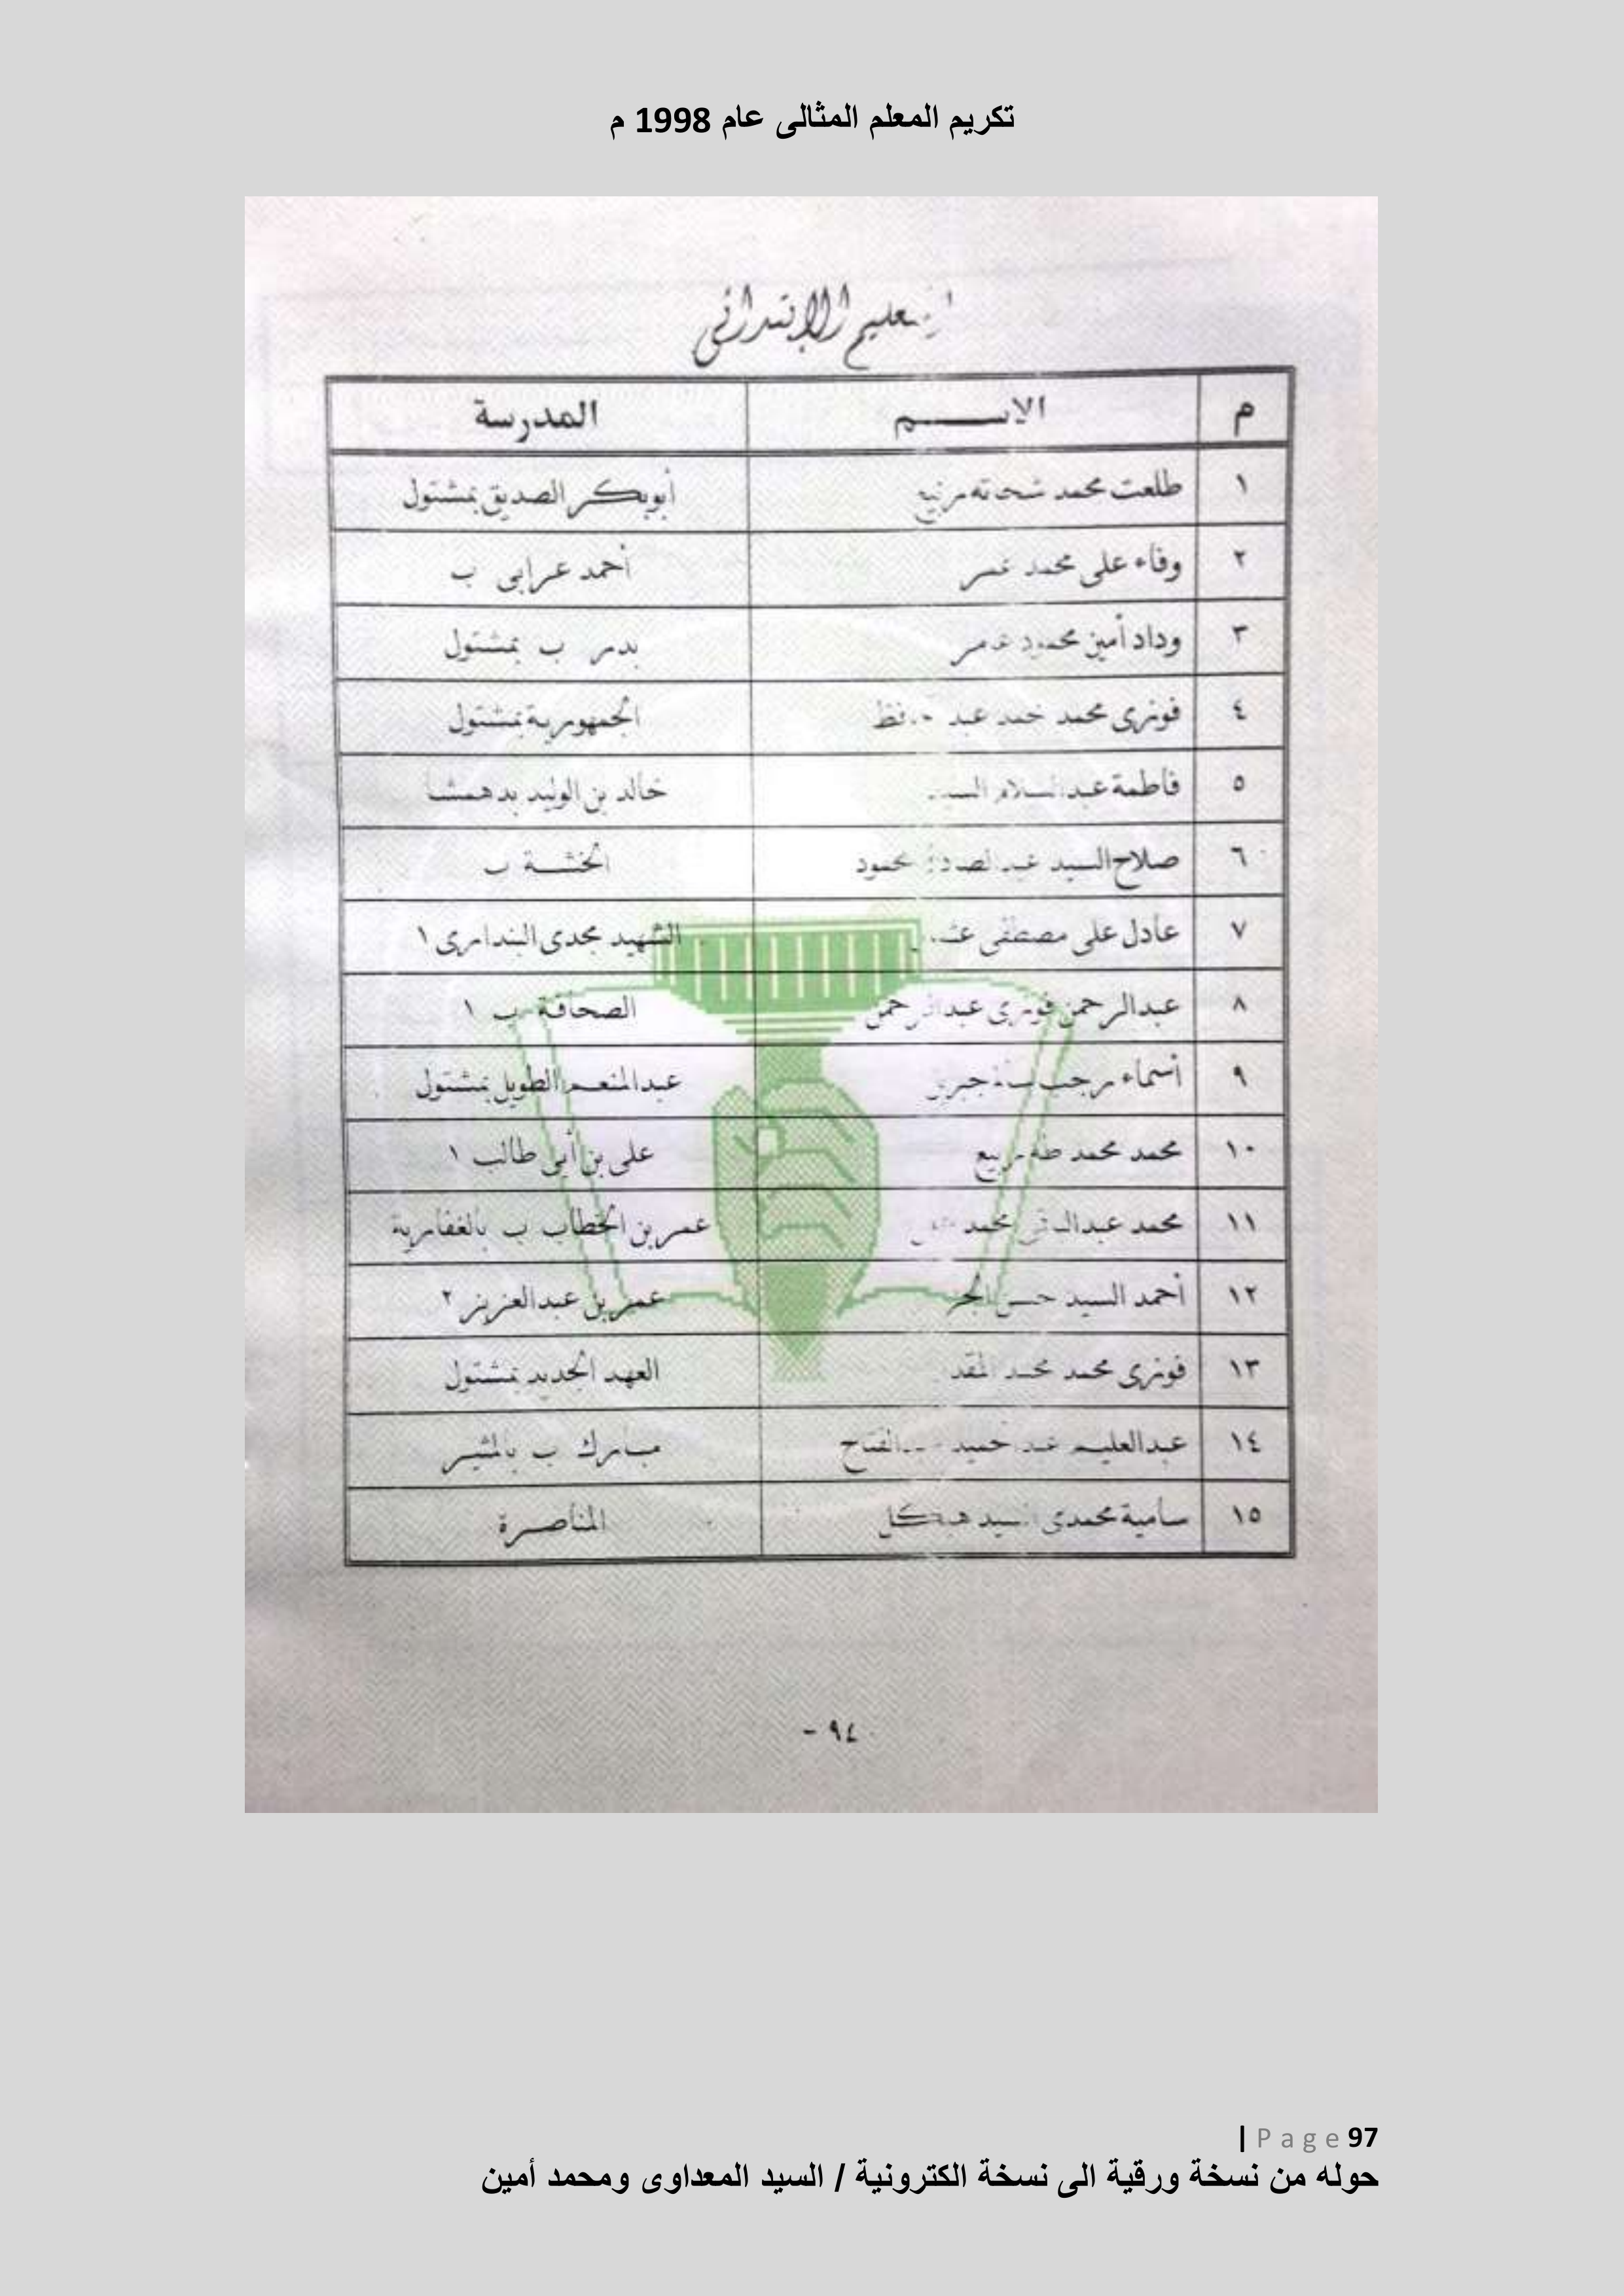 تكريم المعلم المثالى عام 1998 م
التعليم الابتدائى
م الاســـم المدرسة
١ طلعت محمد شحاته ربيع أبوبكر الصديق بمشتول
٢ وفاء على محمد أحمد عرابى ب
٣ وداد أمين محمود عامر بدر ب بمشتول
٤ فوزى محمد عبد الجمهورية بمشتول
٥ فاطمة عبدالسلام السيد خالد بن الوليد بدهمشا
٦ صلاح السيد عبد الصادق محمود الخشة ب
٧ عادل على مصطفى الشهيد مجدى البندارى ١
٨ عبدالرحمن فوزى عبدالرحمن الصحافة ب ١
٩ أسماء رجب عبدالمنعم الطويل بمشتول
١٠ محمد محمد طه ربيع على بن أبى طالب ١
١١ محمد محمد عمر بن الخطاب ب بالغفارية
١٢ أحمد السيد حسن عمر بن عبدالعزيز ٢
١٣ فوزى محمد محمد العهد الجديد بمشتول
١٤ عبدالعليم عبدالحميد عبدالفتاح مبارك ب بالمنير
١٥ سامية محمدى السيد هيكل المناصرة
٩٤ -
| Page 97
حوله من نسخة ورقية الى نسخة الكترونية / السيد المعداوى ومحمد أمين